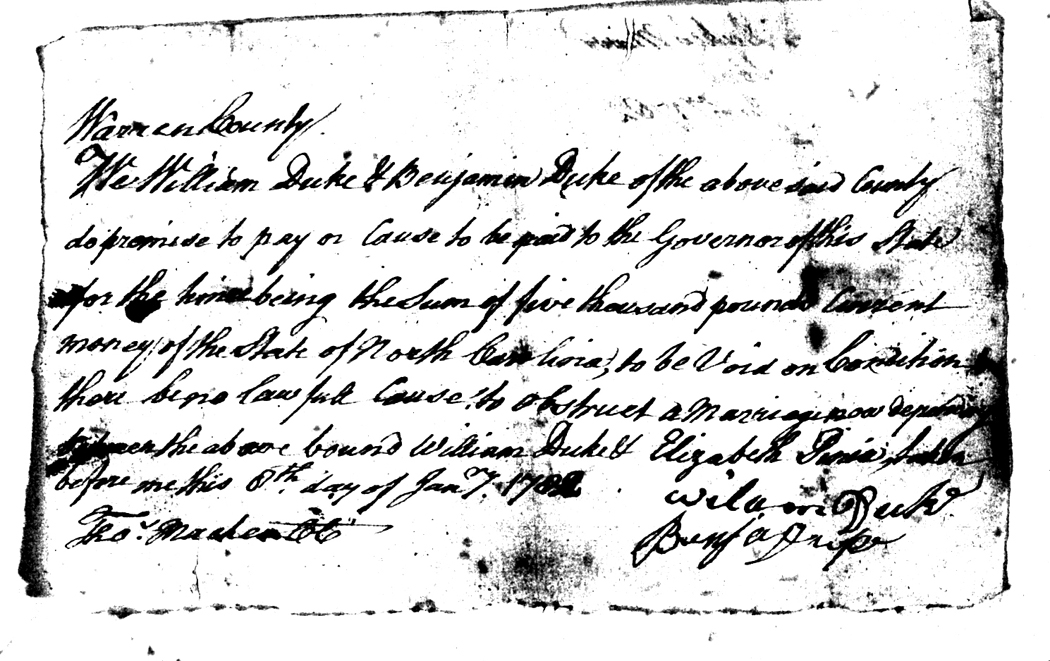 Warren County
We William Duke & Benjamin Duke of the above said County
do promise to pay or Cause to be paid to the Governor of this State
for the time being the Sum of five thousand pounds Current
money of the State of North Carolina, to be Void on Condition
there be no lawfull Cause to obstruct a Marriage now depending
the above bound William Duke & Elizabeth taken
before me this 8th. day of Jany. 1782
Tho.
Duke